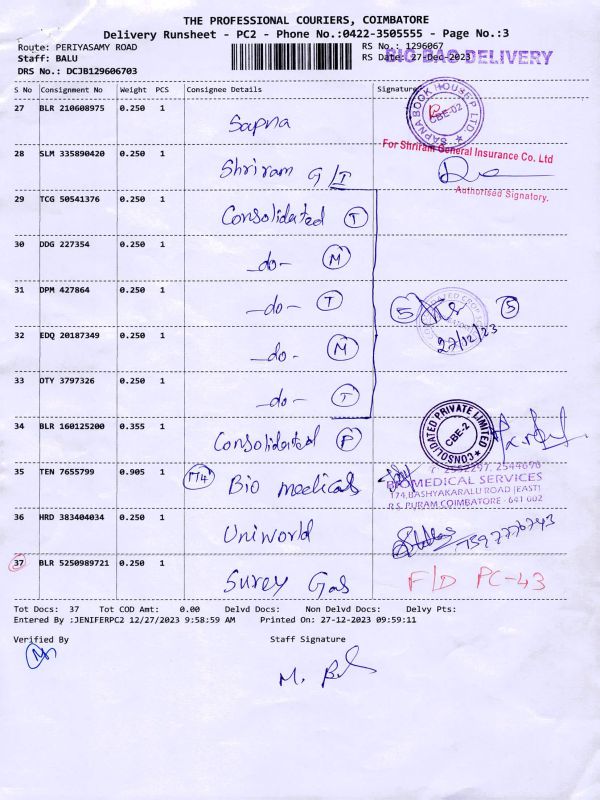 THE PROFESSIONAL COURIERS, COIMBATORE
Delivery Runsheet - PC2 - Phone No.:0422-3505555 - Page No.:3
Route: PERIYASAMY ROAD RS No.: 1296067
Staff: BALU RS Date: 27-Dec-2023 BIG BAG DELIVERY
DRS No.: DCJB129606703
S No Consignment No Weight PCS Consignee Details Signature
27 BLR 210608975 0.250 1 Sapna SAPNA BOOK HOUSE P LTD CBE-02
28 SLM 335890420 0.250 1 Shriram G/I For Shriram General Insurance Co. Ltd
Authorised Signatory.
29 TCG 50541376 0.250 1 Consolidated T
30 DDG 227354 0.250 1 -do- M
31 DPM 427864 0.250 1 -do- T 5 5
27/12/23
32 EDQ 20187349 0.250 1 -do- M
33 OTY 3797326 0.250 1 -do- T
34 BLR 160125200 0.355 1 Consolidated F CONSOLIDATED PRIVATE LIMITED CBE-2
35 TEN 7655799 0.905 1 Bio medicals 2544696
BIOMEDICAL SERVICES
174, BASHYAKARALU ROAD (EAST)
R.S. PURAM, COIMBATORE - 641 002
36 HRD 383404034 0.250 1 Uniworld
37 BLR 5250989721 0.250 1 Surey Gas F/D PC-43
Tot Docs: 37 Tot COD Amt: 0.00 Delvd Docs: Non Delvd Docs: Delvy Pts:
Entered By :JENIFERPC2 12/27/2023 9:58:59 AM Printed On: 27-12-2023 09:59:11
Verified By Staff Signature